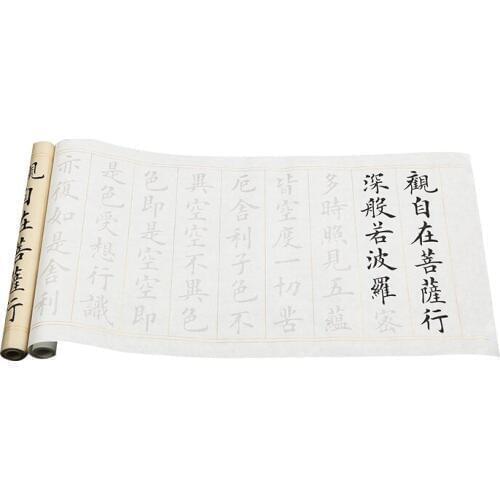 觀自在菩薩行
深般若波羅密
多時照見五蘊
皆空度一切苦
厄舍利子色不
異空空不異色
色即是空空即
是色受想行識
亦復如是舍利
觀自在菩薩行